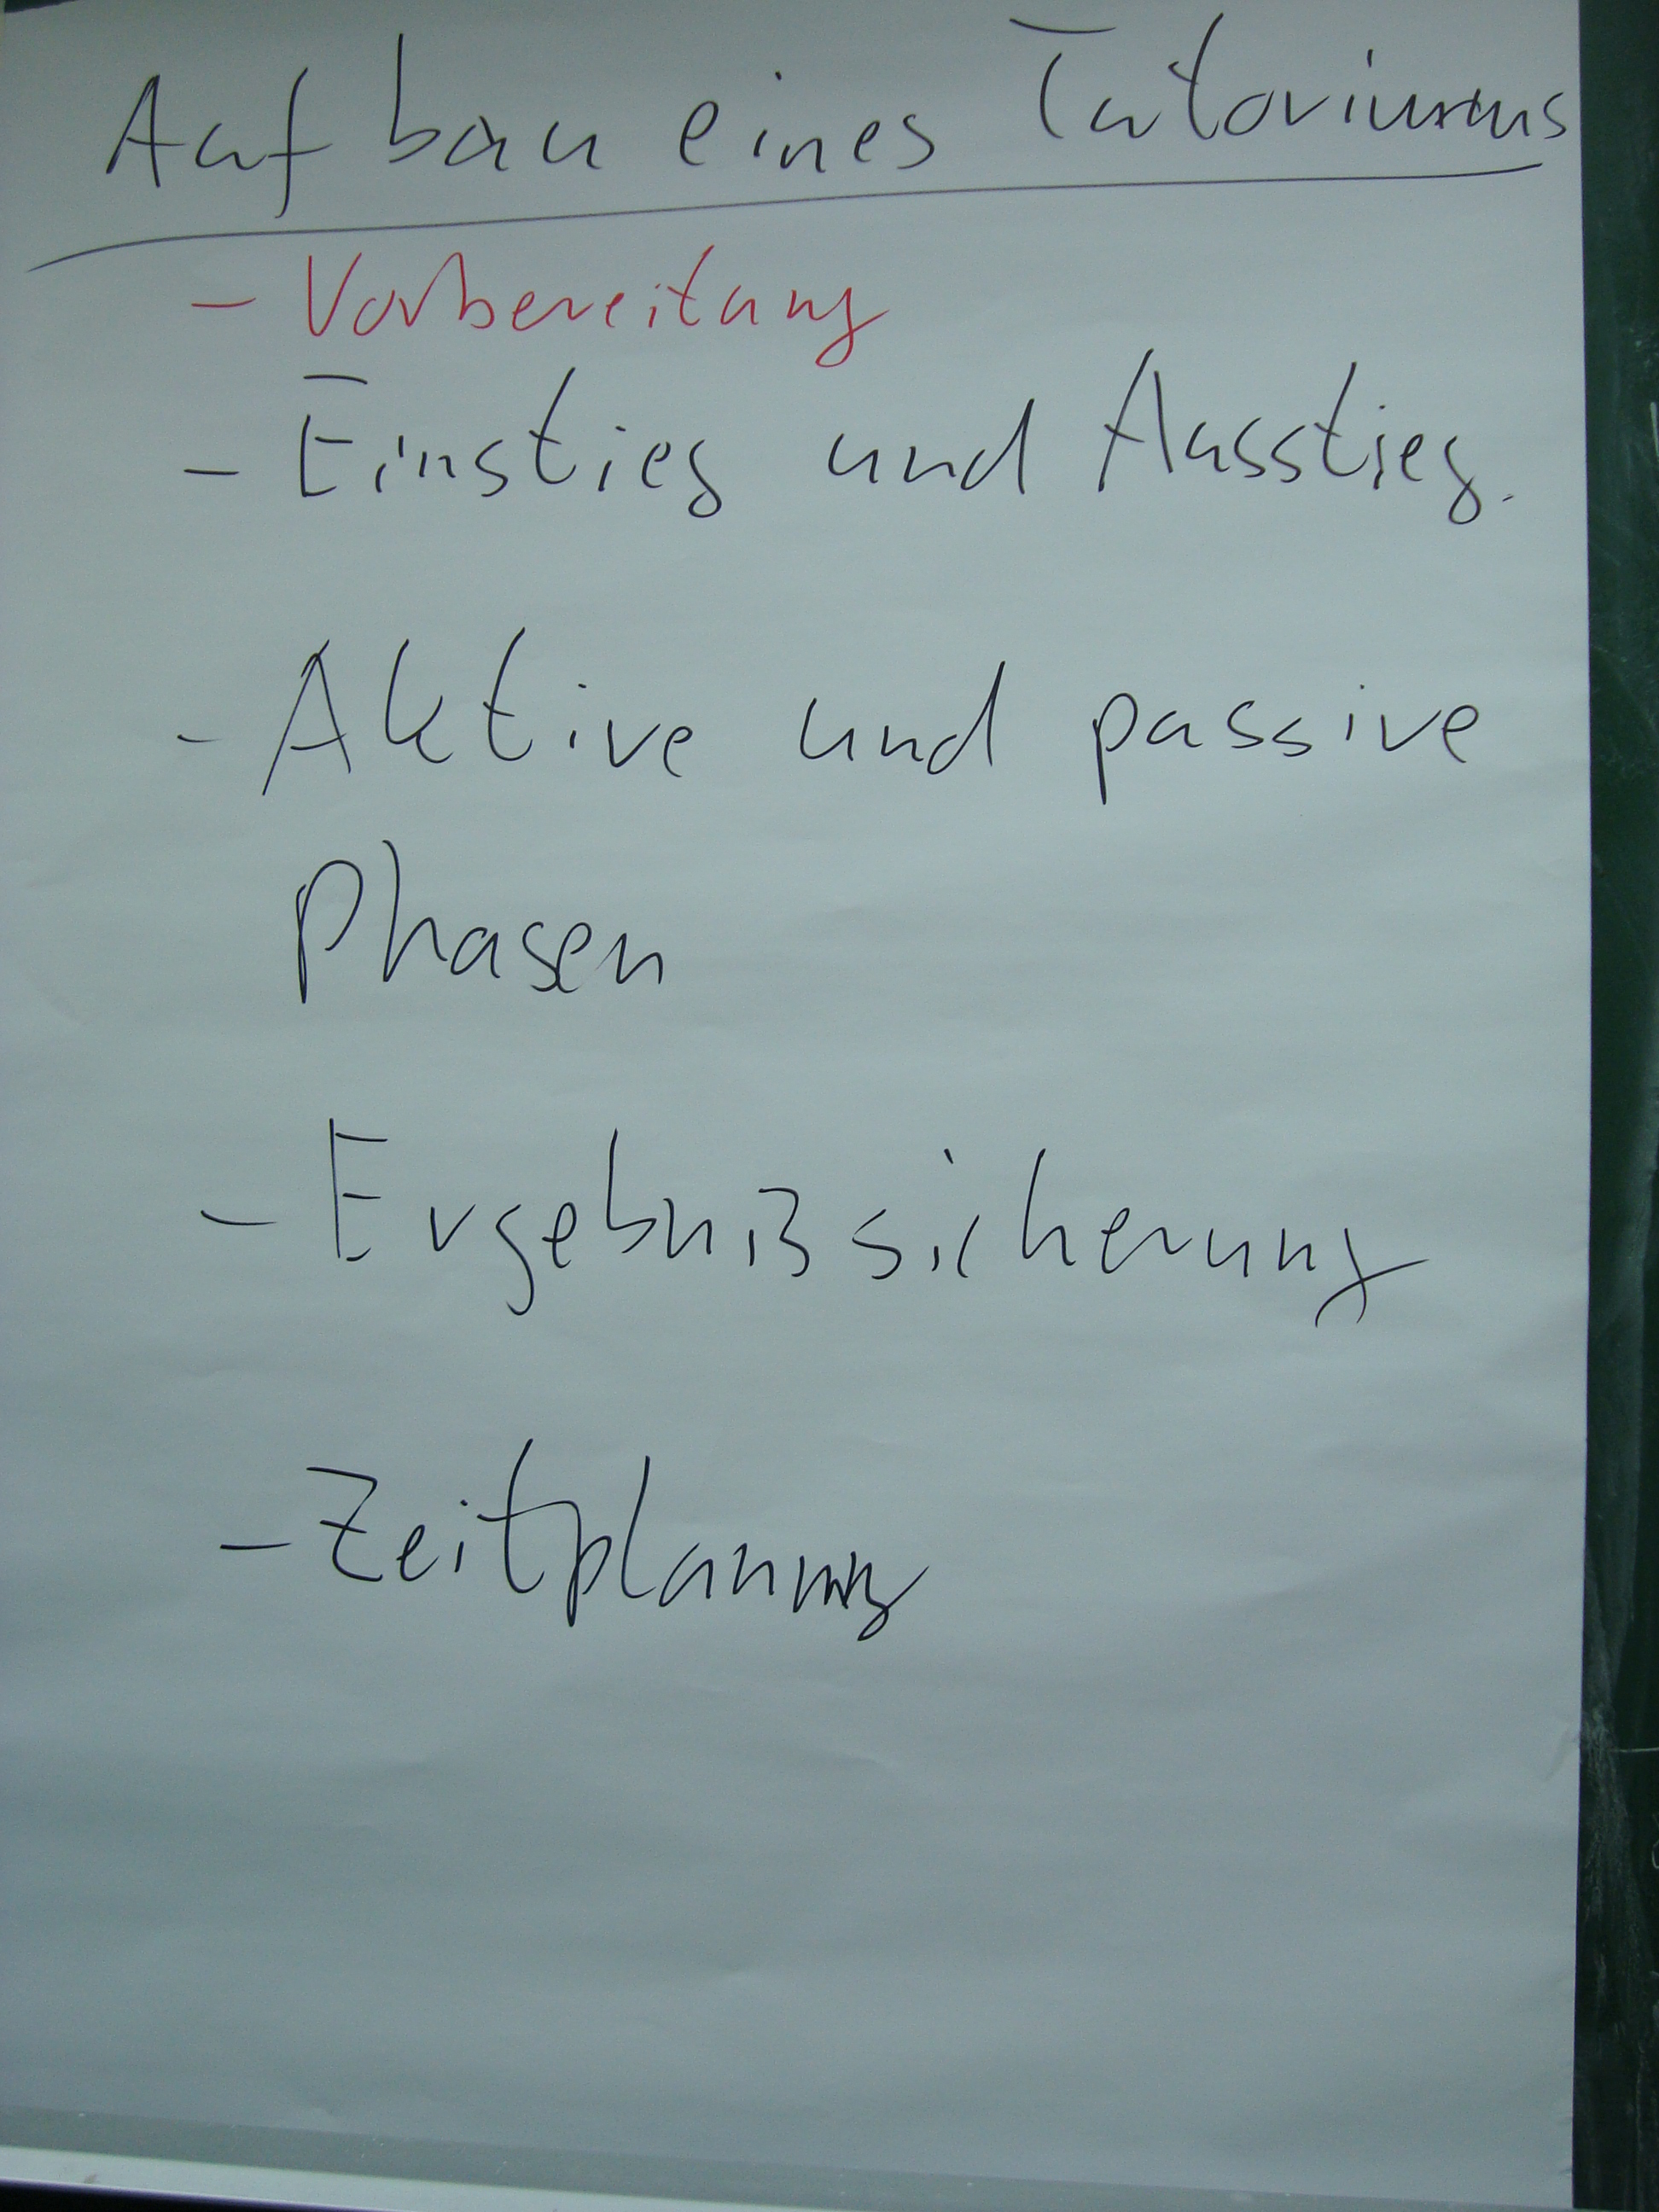 Aufbau eines Tutoriums
- Vorbereitung
- Einstieg und Ausstieg.
- Aktive und passive
Phasen
- Ergebnißsicherung
- Zeitplanung